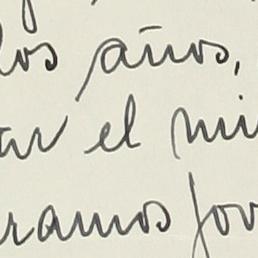 los años,
ar el mi
ramos jov